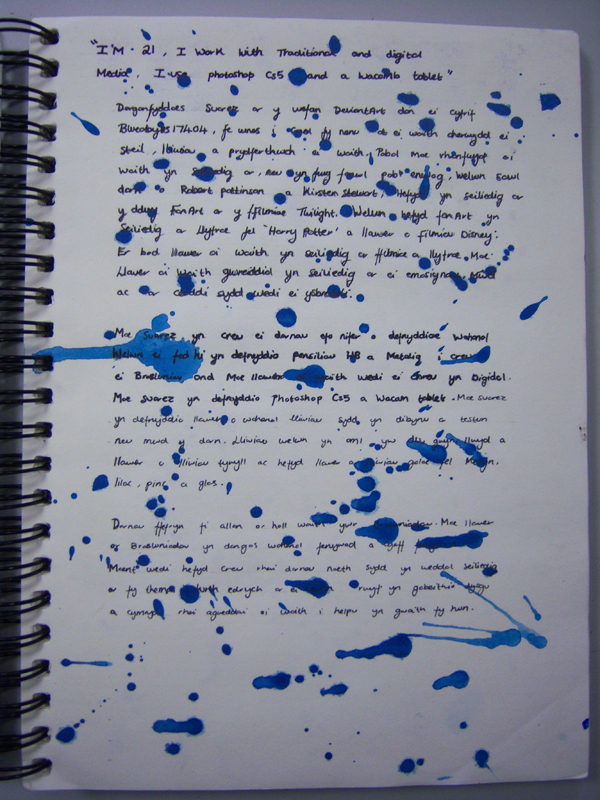 "I'M 21, I Work with Traditional and digital
Media, I use photoshop Cs5 and a Wacom tablet"
Darganfyddais Suarez ar y wefan DeviantArt dan ei cyfrif
fe wnes i fy newi at ei waith oherwydd ei
steil, lliwiau a prydferthwch ei waith. Pobol mae rhanfwyaf o'i
waith yn seiliedig ar, neu yn fwy fawl pobl enwog, Welwn sawl
darn o Robert pattinson a Kirsten Stewart, Hefyd yn seiliedig ar
y ddwy FanArt ar y ffilmiae Twilight. Welwn hefyd fanArt yn
Seiliedig ar llyfrae fel 'Harry Potter' a llawer o filmiau Disney.
Er bod llawer o'i waith yn seiliedig ar ffilmia a llyfrae, Mae
llawer o'i waith gwreiddiol yn seiliedig ar ei emosiynau,
ac ar cerddi sydd wedi ei ysbrydoli.
Mae Suarez, yn creu ei darnau efo nifer o defnyddiae wahanol
Welwn ei fod hi yn defnyddio pensiliau HB a Metalig i creu
ei Braslunian and Mae llawer waith wedi ei Creu yn Digidol.
Mae Suarez yn defnyddio Photoshop Cs5 a Wacom tablet. Mae Suarez
yn defnyddio llawer o wahanol lliwiau sydd yn dibynu a testun
neu mwd y darn. Lliwiau welwn yn aml yw llwyd a
llawer o lliwiau tywyll ac hefyd llawer o lliwiau golae fel Melyn,
lilac, pinc a glas.
Darnau ffefryn fi allan or holl waith ywr Brasluniadau. Mae llawer
or Brasluniadau yn dangos wahanol fenywod a
Maent wedi hefyd creu rhai darnau noeth sydd yn weddol seiliedig
ar fy thema Wrth edrych ar ei rwyf yn gobeithio dysgu
a cymryd rhai agweddau oi waith i helpu yn gwaith fy hun.